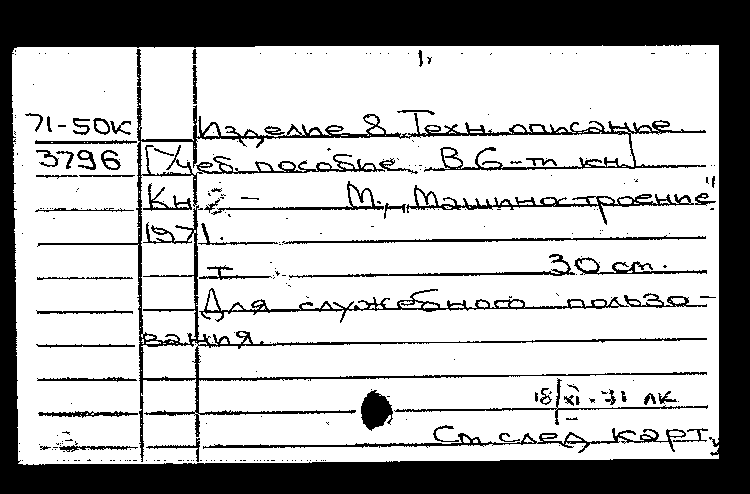 1.
71-50к Изделие 8 Техн. описание.
3796 [Учеб. пособие. В 6-ти кн.]
Кн 2 - М., „Машиностроение"
1971.
т 30 см.
Для служебного пользо-
вания.
18/XI-71 лк
См след карту